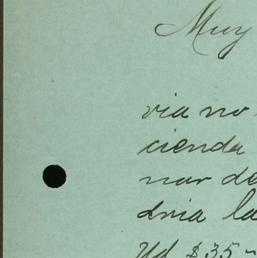 Muy
via no
cienda
nar de
dria la
Ud $35